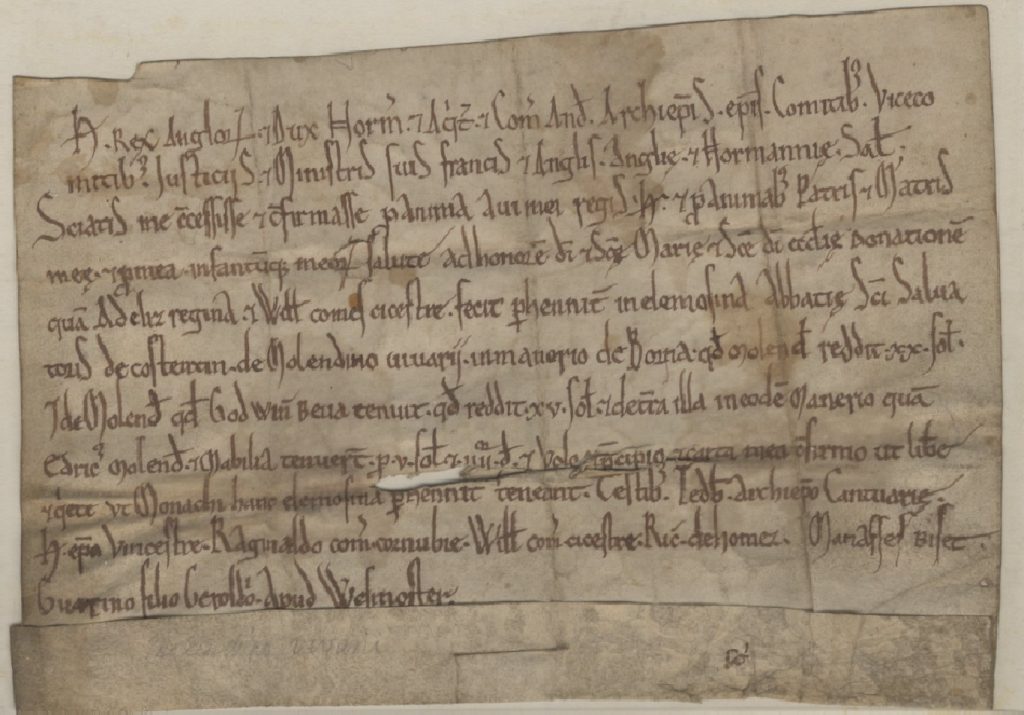 H. Rex Anglorꝝ. ⁊ Dux Norm̄. ⁊ Aq̇t̄. ⁊ Com̄ And̄. Archiep̄is. ep̄is. Comitibꝫ. Viceco
mitibꝫ. Justiciis. ⁊ Ministris suis francis ⁊ Anglis. Anglię. ⁊ Normannię. Sal̄.
Sciatis me c̄cessisse ⁊ c̄firmasse p̱ anima aui mei regis. H. ⁊ p̱ animabꝫ Patris ⁊ Matris
męę. ⁊ p̱ mea infantūq meoꝝ salute ad honorē di ⁊ Scę Marię ⁊ Scę di ecclię Donationē
quā Adeliz regina ⁊ Will̄ comes cicestre. fecit p̱henniť in elemosina Abbatię Sci Salua
toris de costentin. de Molendino viuarij. in manerio de Borna. qd̄ molend̄ reddit. xx. sol̄.
⁊ de Molend̄ qd̄ Godwin̄ Beua tenuit. qd̄ reddit. xv. sol̄. ⁊ de t̄ra illa in eodē Manerio quā
Edricꝫ molend̄. ⁊ Mabilia tenuer̄t. p. v. sol̄. ⁊ iiii. d̄. ⁊ Volo ⁊ p̄cipio. ⁊ carta mea c̄firmo ut libe
⁊ q̇ete ut Monachi hanc elemosinā p̱henniť teneant. Testibꝫ. Tedb̄. Archiep̄o Cantuarię.
H. ep̄o Vincestre. Raginaldo com̄ cornubie. Will̄ com̄ cicestre. Ric̄. de homez. Manasses Biset.
Guarino filio Geroldi. Apud Wesmoster.